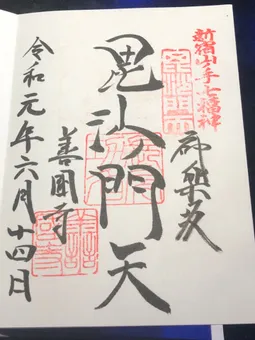 新宿山ノ手七福神
神樂坂
毘沙門天
善國寺
令和元年六月十四日